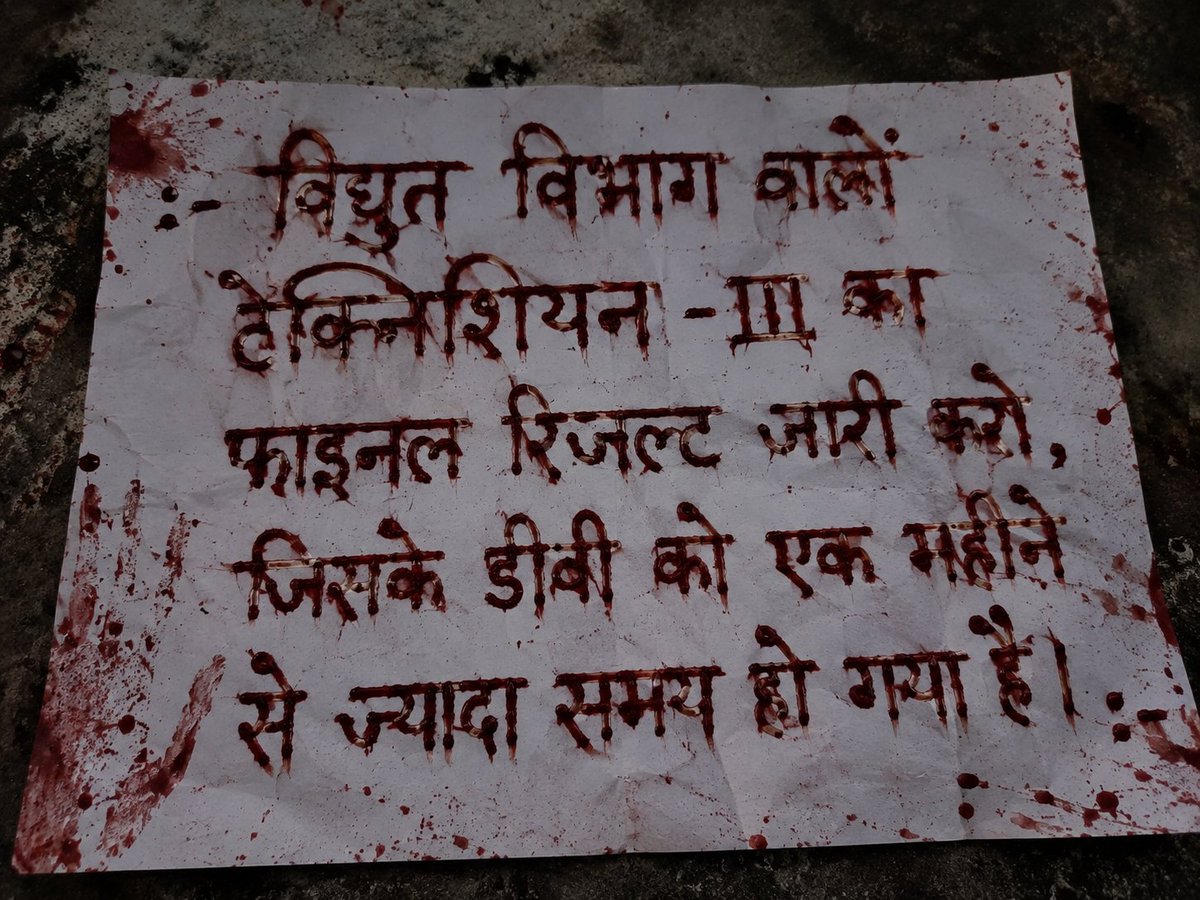 :- विद्युत विभाग वालों
टेक्निशियन -III का
फाइनल रिजल्ट जारी करो,
जिसके डीवी को एक महीने
से ज्यादा समय हो गया है। :-